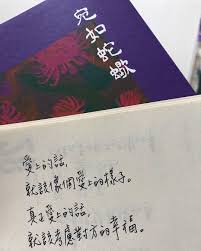 宛如蛇蠍
愛上的話,
就該像個愛上的樣子。
真正愛上的話,
就該考慮對方的幸福。